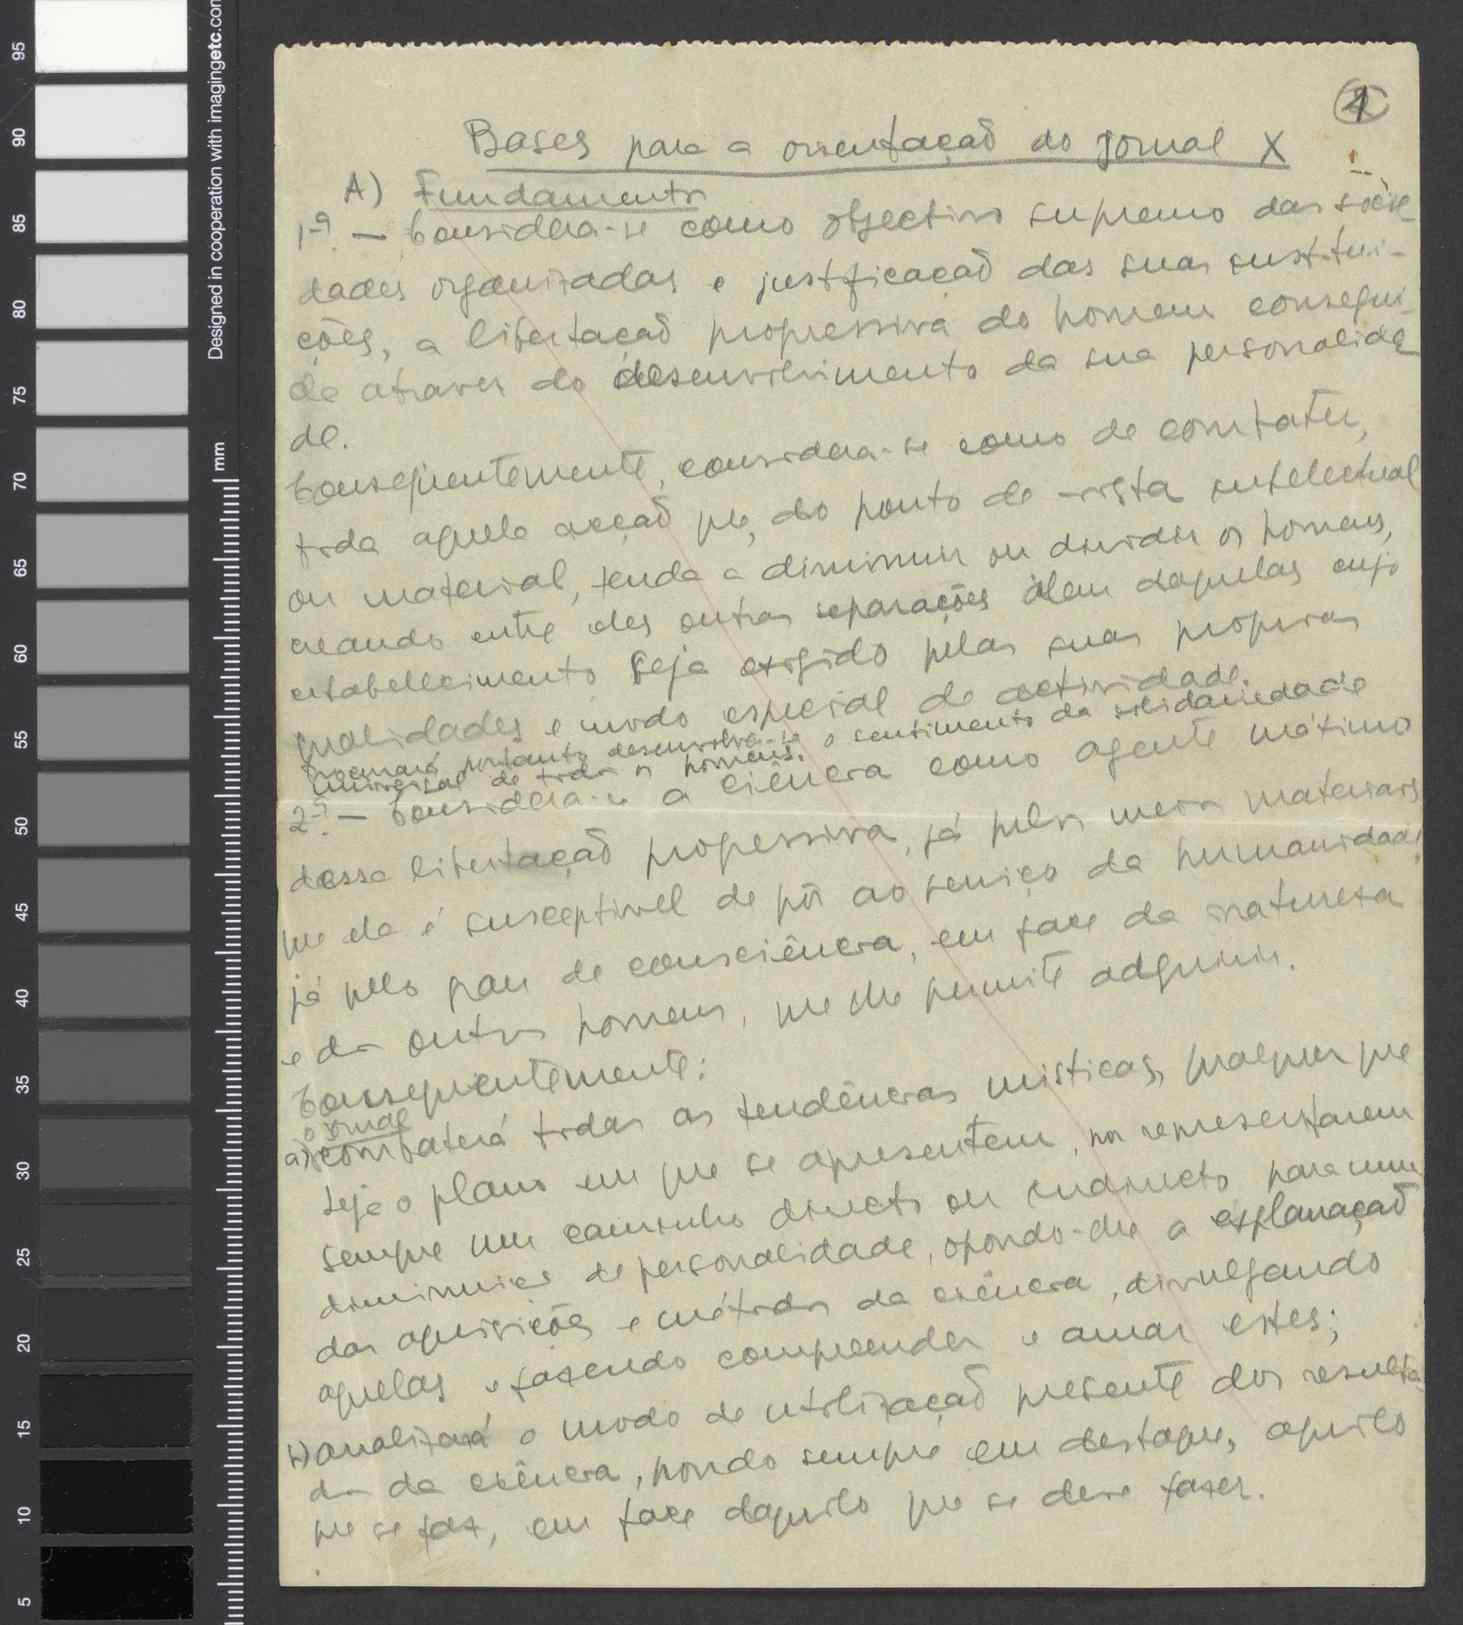 1
Bases para a orientação do Jornal X
A) Fundamentos
1º. — Considera-se como objectivo supremo das socie-
dades organizadas e justificação das suas institui-
ções, a libertação progressiva do homem consegui-
da atraves do desenvolvimento da sua personalida
de.
Consequentemente, considera-se como de combater,
toda aquela acção que, do ponto de vista intelectual
ou material, tenda a diminuir ou dividir os homens,
creando entre eles outras separações alem daquelas cujo
estabelecimento seja exigido pelas suas proprias
qualidades e modo especial de actividade.
Procurará portanto desenvolver-se o sentimento da solidariedade
universal de todos os homens.
2º. — Considera-se a ciência como agente máximo
dessa libertação progressiva, já pelos meios materiais
que ela é susceptivel de pôr ao serviço da humanidade,
já pelo grau de consciência, em face da natureza
e dos outros homens, que lhe permite adquirir.
Consequentemente:
o jornal
a) combaterá todas as tendências misticas, qualquer que
seja o plano em que se apresentem, por representarem
sempre um caminho directo ou indirecto para uma
diminuição de personalidade, opondo-lhe a explanação
das aquisições e métodos da ciência, divulgando
aquelas e fazendo compreender e amar estes;
b) analizará o modo de utilização presente dos resulta-
dos da ciência, pondo sempre em destaque, aquilo
que se faz, em face daquilo que se deve fazer.
95
90
85
80
75
70
65
60
55
50
45
40
35
30
25
20
15
10
5
Designed in cooperation with imagingetc.com
mm